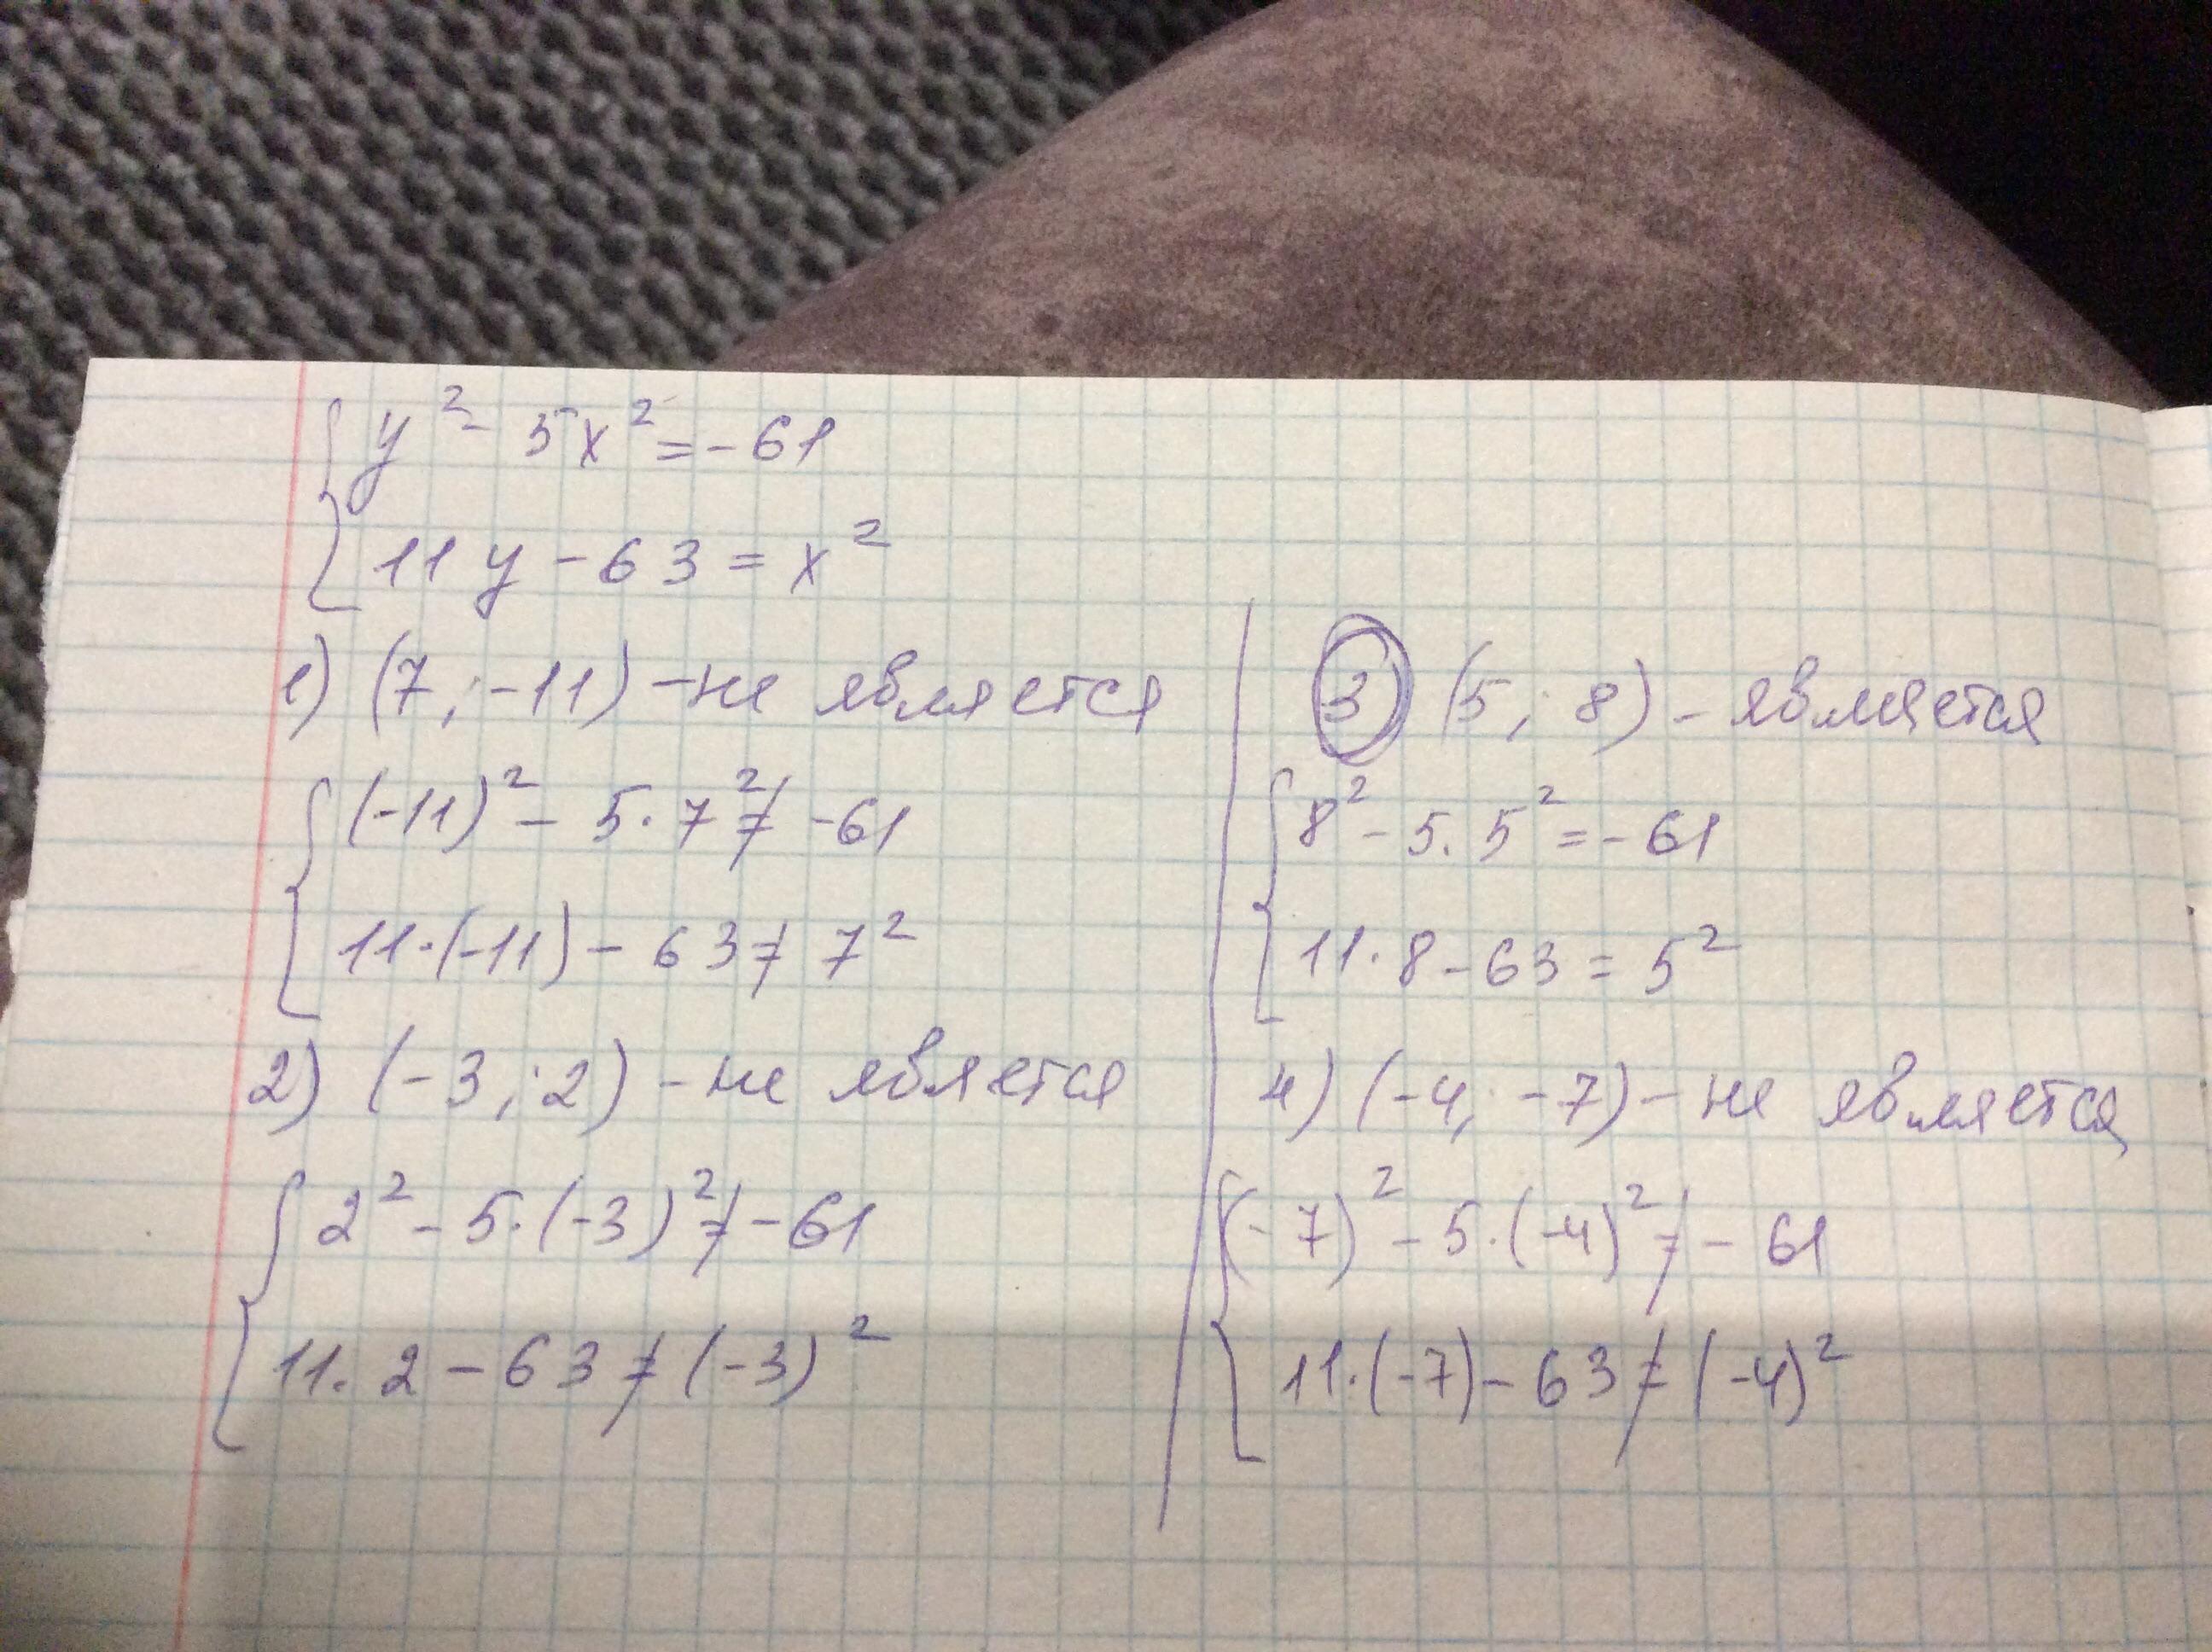 y² - 5x² = -61
11y - 63 = x²
1) (7; -11) - не является
(-11)² - 5·7² ≠ -61
11·(-11) - 63 ≠ 7²
2) (-3; 2) - не явяется
2² - 5·(-3)² ≠ -61
11·2 - 63 ≠ (-3)²
3) (5; 8) - является
8² - 5·5² = -61
11·8 - 63 = 5²
4) (-4; -7) - не является
(-7)² - 5·(-4)² ≠ -61
11·(-7) - 63 ≠ (-4)²